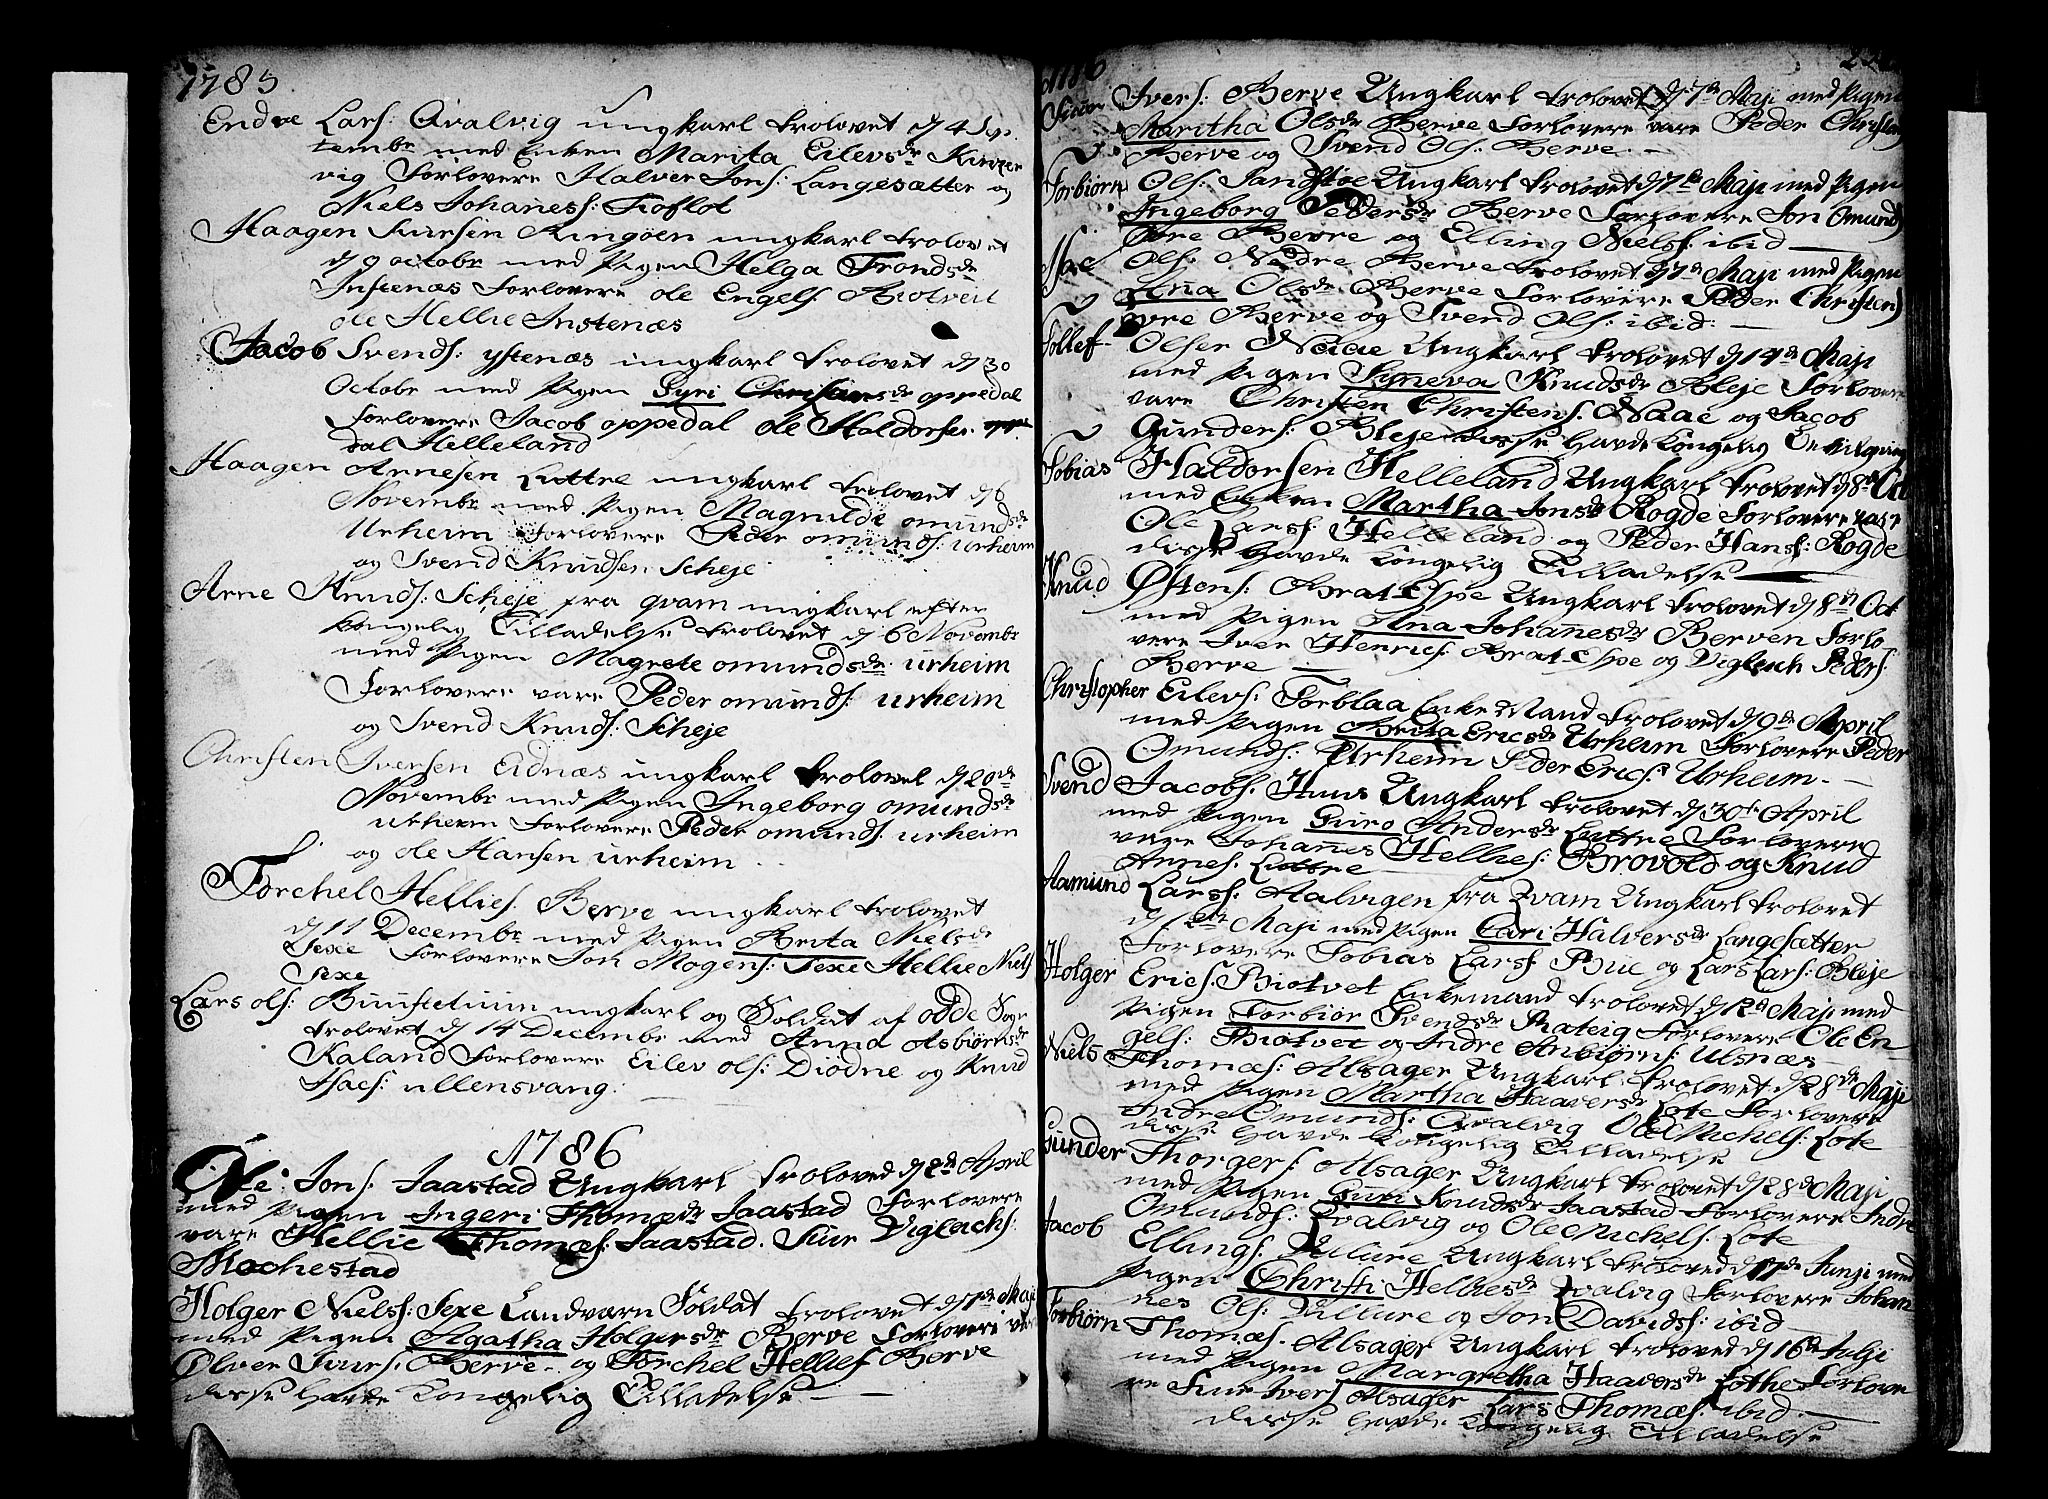 1785
Endre Lars: Qvalvig ungkarl trolovet d 4 Sep-
tembr med Enken Marita Eilevsdr Kinzer
vig Forlovere Halver Jons: Langesætter og
Niels Johaness: Tioflot
Haagen Siursen Ringøen ungkarl trolovet
d 9 octobr med Pigen Helga Trondsdr
Instenæs Forlovere ole Engels: Biotveit
ole Hellie Instenæs
Jacob Svends: ystenæs ungkarl trolovet d 30
Octobr med Pigen Syri Christensdr oppedal
Forlovere Jacob oppedal ole Haldorsen
dal Helleland
Haagen Arnesen Luttre ungkarl trolovet d 6
Novembr med Pigen Magnilde omundsdr
Urheim Forlovere Peder omunds: urheim
og Svend Knudsen Scheje
Arne Knuds: Scheje fra qvam ungkarl efter
kongelig Tilladelse trolovet d 6 Novembr
med Pigen Magrete omundsdr urheim
Forlovere vare Peder omunds: urheim
og Svend Knuds: Scheje
Christen Iversen Eidnæs ungkarl trolovet d 20de
Novembr med Pigen Ingeborg omundsdr
urheim Forlovere Peder omunds: urheim
og ole Hansen urheim
Torchel Hellies: Berve ungkarl trolovet
d 11 Decembr med Pigen Brita Nielsdr
Sexe Forlovere Jon Mogens: Sexe Hellie Niels
Sexe
Lars ols: Buustetuun ungkarl og Soldat af odde Sogn
trolovet d 14 Decembr med Anna Asbiørnsdr
Kaland Forlovere Eilev ols: Diødne og Knud
Isacs: ullensvang
1786
Ole Jons: Jaastad Ungkarl Troloved d 2d April
med Pigen Ingeri Thomædr Jaastad Forlovere
vare Hellie Thomæs: Jaastad. Siur Viglachs:
Mochestad
Holger Niels: Sexe Landværn Soldat trolovet d 7de Maji
med Pigen Agatha Holgersdr Berve Forlovere vare
Olver Siurs: Berve og Torchel Hellies Berve
disse havde Kongelig Tilladelse
Siur Ivers: Berve Ungkarl trolovet d 7de Maji med Pigen
Maritha Olsdr Berve Forlovere vare Peder Christens
Berve og Svend Ols: Berve
Torbiørn Ols: Jandstoe Ungkarl trolovet d 7de Maji med Pigen
Ingeborg Pedersdr Berve Forlovere Jon Omunds
øvre Berve og Elling Niels: ibid
Isac Ols: Nedre Berve trolovet d 7de Maji med Pigen
Ana Olsdr Berve Forlovere Peder Christens
øvre Berve og Svend Ols: ibid:
Tollef Olsen Naae Ungkarl trolovet d 14de Maji
med Pigen Syneva Knudsdr Bleje Forlovere
vare Christen Christens: Naae og Jacob
Gunders: Bleje disse havde Kongelig Bevilgning
Tobias Haldorsen Helleland Ungkarl trolovet d 8de Oct
med Enken Martha Jonsdr Rogde Forlovere vare
Ole Larss: Helleland og Peder Hans: Rogde
disse havde Kongelig Tilladelse
Knud Østens: Brat-Espe Ungkarl trolovet d 8de Oct
med Pigen Ana Johannesdr Berven Forlo
vere Iver Henrics: Brat-Espe og Viglech Peders:
Berve
Christopher Eilevs: Torblaa Enke Mand trolovet d 9de April
med Pigen Brita Ericsdr Urheim Forlovere Peder
Omunds: Urheim Peder Erics: Urheim
Svend Jacobs: Huus Ungkarl trolovet d 30te April
med Pigen Guro Andersdr Luttre Forlovere
vare Johannes Hellies: Brovold og Knud
Arnes: Luttre
Aamund Larss: Aalvigen fra Qvam Ungkarl trolovet
Maji med Pigen Cari Halversdr Langesætter
Forlovere Tobias Larss Bue og Lars Lars: Bleje
Holger Erics: Biotvet Enkemand trolovet d 12d Maji med
Pigen Torbiør Svendsdr Forlovere Ole En-
gels: Biotvet og Andre Anbiørns: Ulsnæs
Niels Thomæs: Alsager Ungkarl trolovet d 28de Maji
med Pigen Martha Haaversdr Lote Forlovere
Andre Omunds: Qvalvig Ole Michels: Lote
disse havde Kongelig Tilladelse
Gunder Thorgers: Alsager Ungkarl trolovet d 28de Maji
med Pigen Guri Knudsdr Jaastad Forlovere Andre
Omunds: Qvalvig og Ole Michels: Lote
Jacob Ellings: Villure Ungkarl troloved d 17de Junji med
Pigen Christi Helliesdr Qvalvig Forlovere Johan
nes Ols: Villure og Jon Davids: ibid
Torbiørn Thomæs: Alsager Ungkarl trolovet d 16de Julji
med Pigen Margretha Haaversdr Lothe Forlove
re Siur Ivers Alsager Lars Thomæs: ibid
disse havde Kongelig Tilladelse